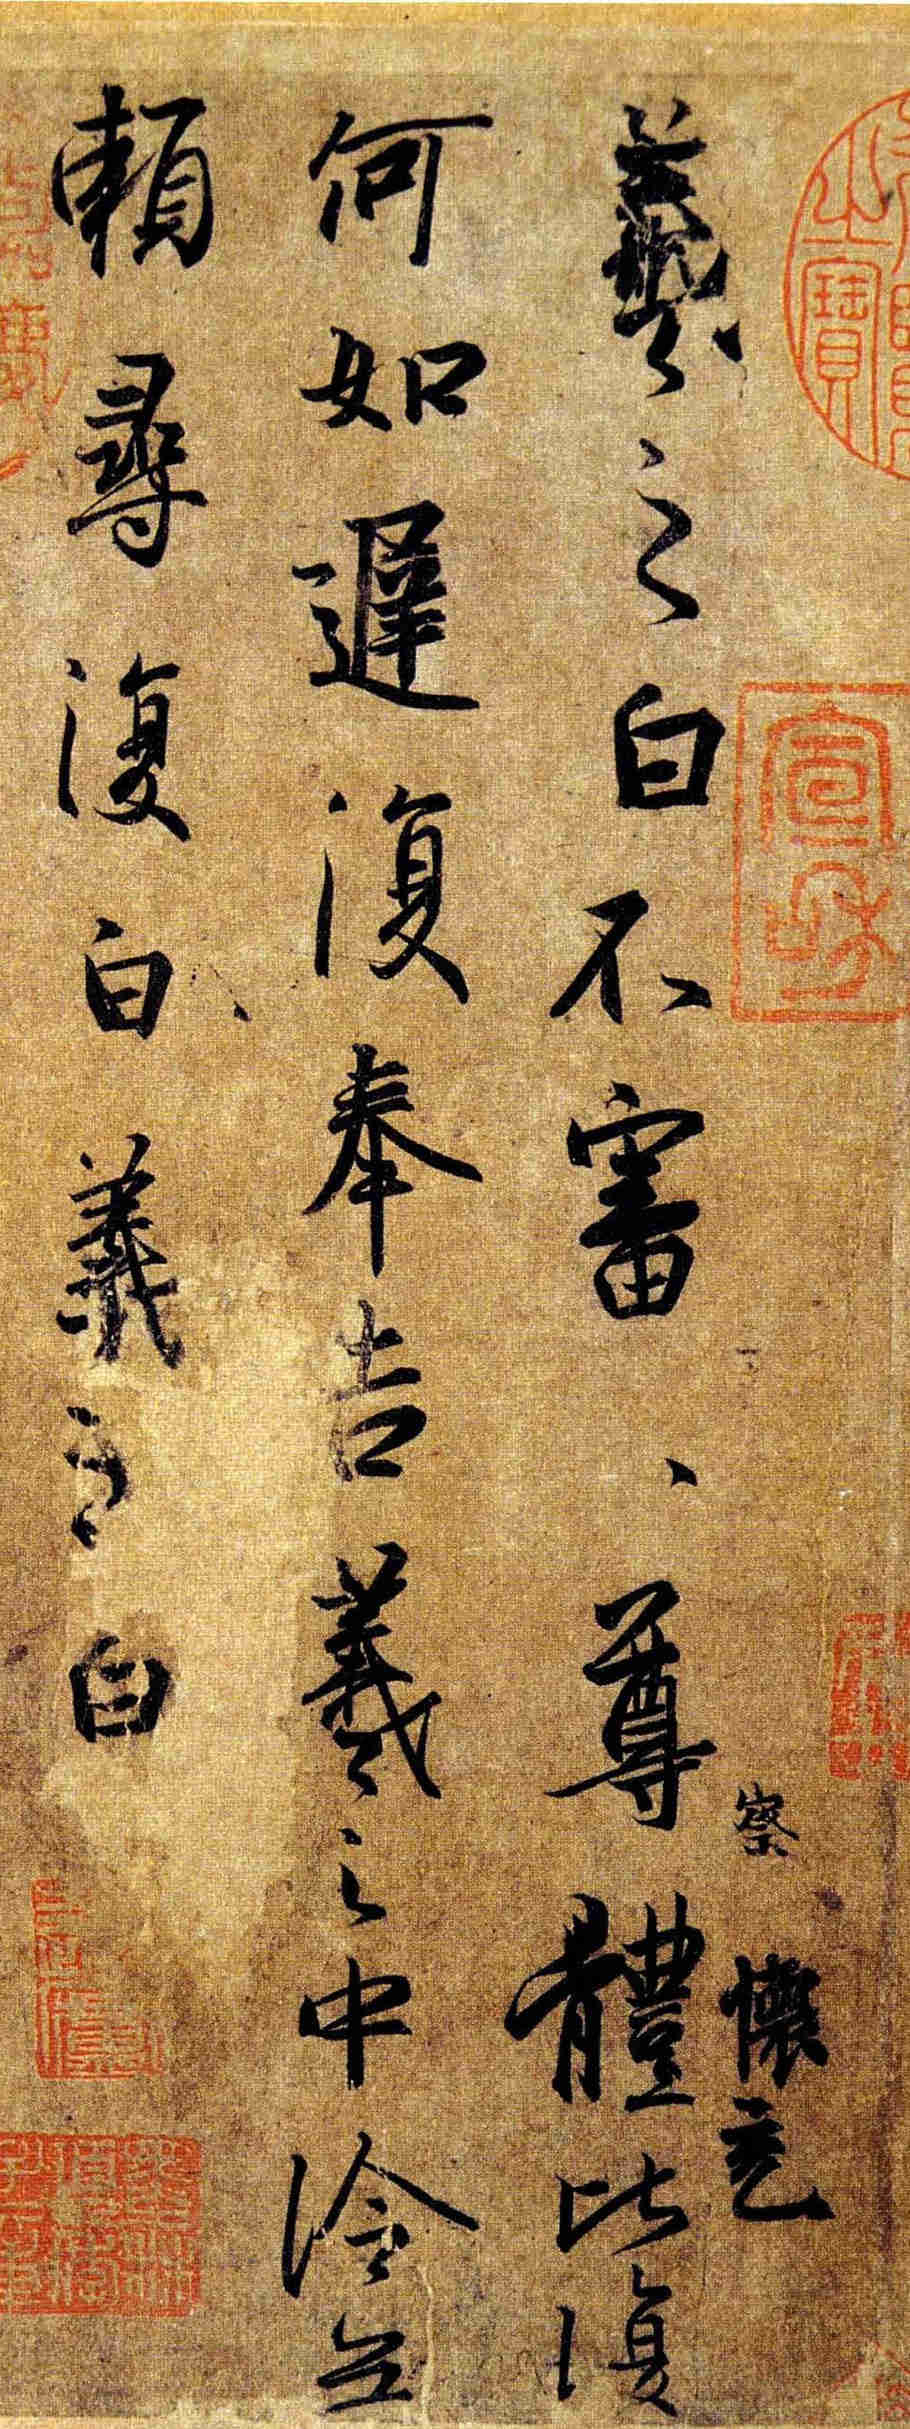 察 懷充
羲之白不審、尊體比復
何如遲復奉告羲之中冷無
賴尋復白羲之白